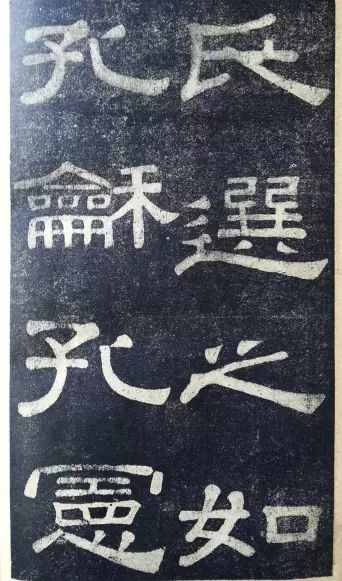 氏選之如
孔龢孔憲